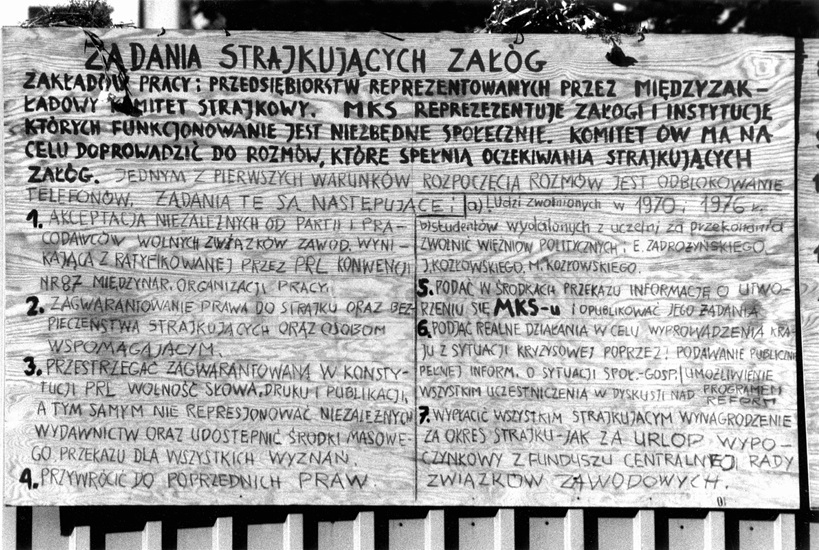 ŻĄDANIA STRAJKUJĄCYCH ZAŁÓG
ZAKŁADÓW PRACY i PRZEDSIĘBIORSTW REPREZENTOWANYCH PRZEZ MIĘDZYZAK-
ŁADOWY KOMITET STRAJKOWY. MKS REPREZEZENTUJE ZAŁOGI I INSTYTUCJE
KTÓRYCH FUNKCJONOWANIE JEST NIEZBĘDNE SPOŁECZNIE. KOMITET ÓW MA NA
CELU DOPROWADZIĆ DO ROZMÓW, KTÓRE SPEŁNIĄ OCZEKIWANIA STRAJKUJĄCYCH
ZAŁÓG. JEDNYM Z PIERWSZYCH WARUNKÓW ROZPOCZĘCIA ROZMÓW JEST ODBLOKOWANIE
TELEFONÓW. ŻĄDANIA TE SĄ NASTĘPUJĄCE:
1. AKCEPTACJA NIEZALEŻNYCH OD PARTII I PRA-
CODAWCÓW WOLNYCH ZWIĄZKÓW ZAWOD. WYNI-
KAJĄCA Z RATYFIKOWANEJ PRZEZ PRL KONWENCJI
NR 87 MIĘDZYNAR. ORGANIZACJI PRACY.
2. ZAGWARANTOWANIE PRAWA DO STRAJKU ORAZ BEZ-
PIECZEŃSTWA STRAJKUJĄCYCH ORAZ OSOBOM
WSPOMAGAJĄCYM.
3. PRZESTRZEGAĆ ZAGWARANTOWANĄ W KONSTY-
TUCJI PRL WOLNOŚĆ SŁOWA, DRUKU I PUBLIKACJI,
A TYM SAMYM NIE REPRESJONOWAĆ NIEZALEŻNYCH
WYDAWNICTW ORAZ UDOSTĘPNIĆ ŚRODKI MASOWE-
GO PRZEKAZU DLA WSZYSTKICH WYZNAŃ.
4. PRZYWRÓCIĆ DO POPRZEDNICH PRAW.
a) Ludzi zwolnionych w 1970 i 1976 r.
b) studentów wydalonych z uczelni za przekonania
ZWOLNIĆ WIĘŹNIÓW POLITYCZNYCH: E. ZADROŻYŃSKIEGO,
J. KOZŁOWSKIEGO, M. KOZŁOWSKIEGO.
5. PODAĆ W ŚRODKACH PRZEKAZU INFORMACJĘ O UTWO-
RZENIU SIĘ MKS-u I OPUBLIKOWAĆ JEGO ŻĄDANIA
6. PODJĄĆ REALNE DZIAŁANIA W CELU WYPROWADZENIA KRA-
JU Z SYTUACJI KRYZYSOWEJ POPRZEZ: PODAWANIE PUBLICZNI
PEŁNEJ INFORM. O SYTUACJI SPOŁ-GOSP. UMOŻLIWIENIE
WSZYSTKIM UCZESTNICZENIA W DYSKUSJI NAD PROGRAMEM
REFORM
7. WYPŁACIĆ WSZYSTKIM STRAJKUJĄCYM WYNAGRODZENIE
ZA OKRES STRAJKU-JAK ZA URLOP WYPO-
CZYNKOWY Z FUNDUSZU CENTRALNEJ RADY
ZWIĄZKÓW ZAWODOWYCH.